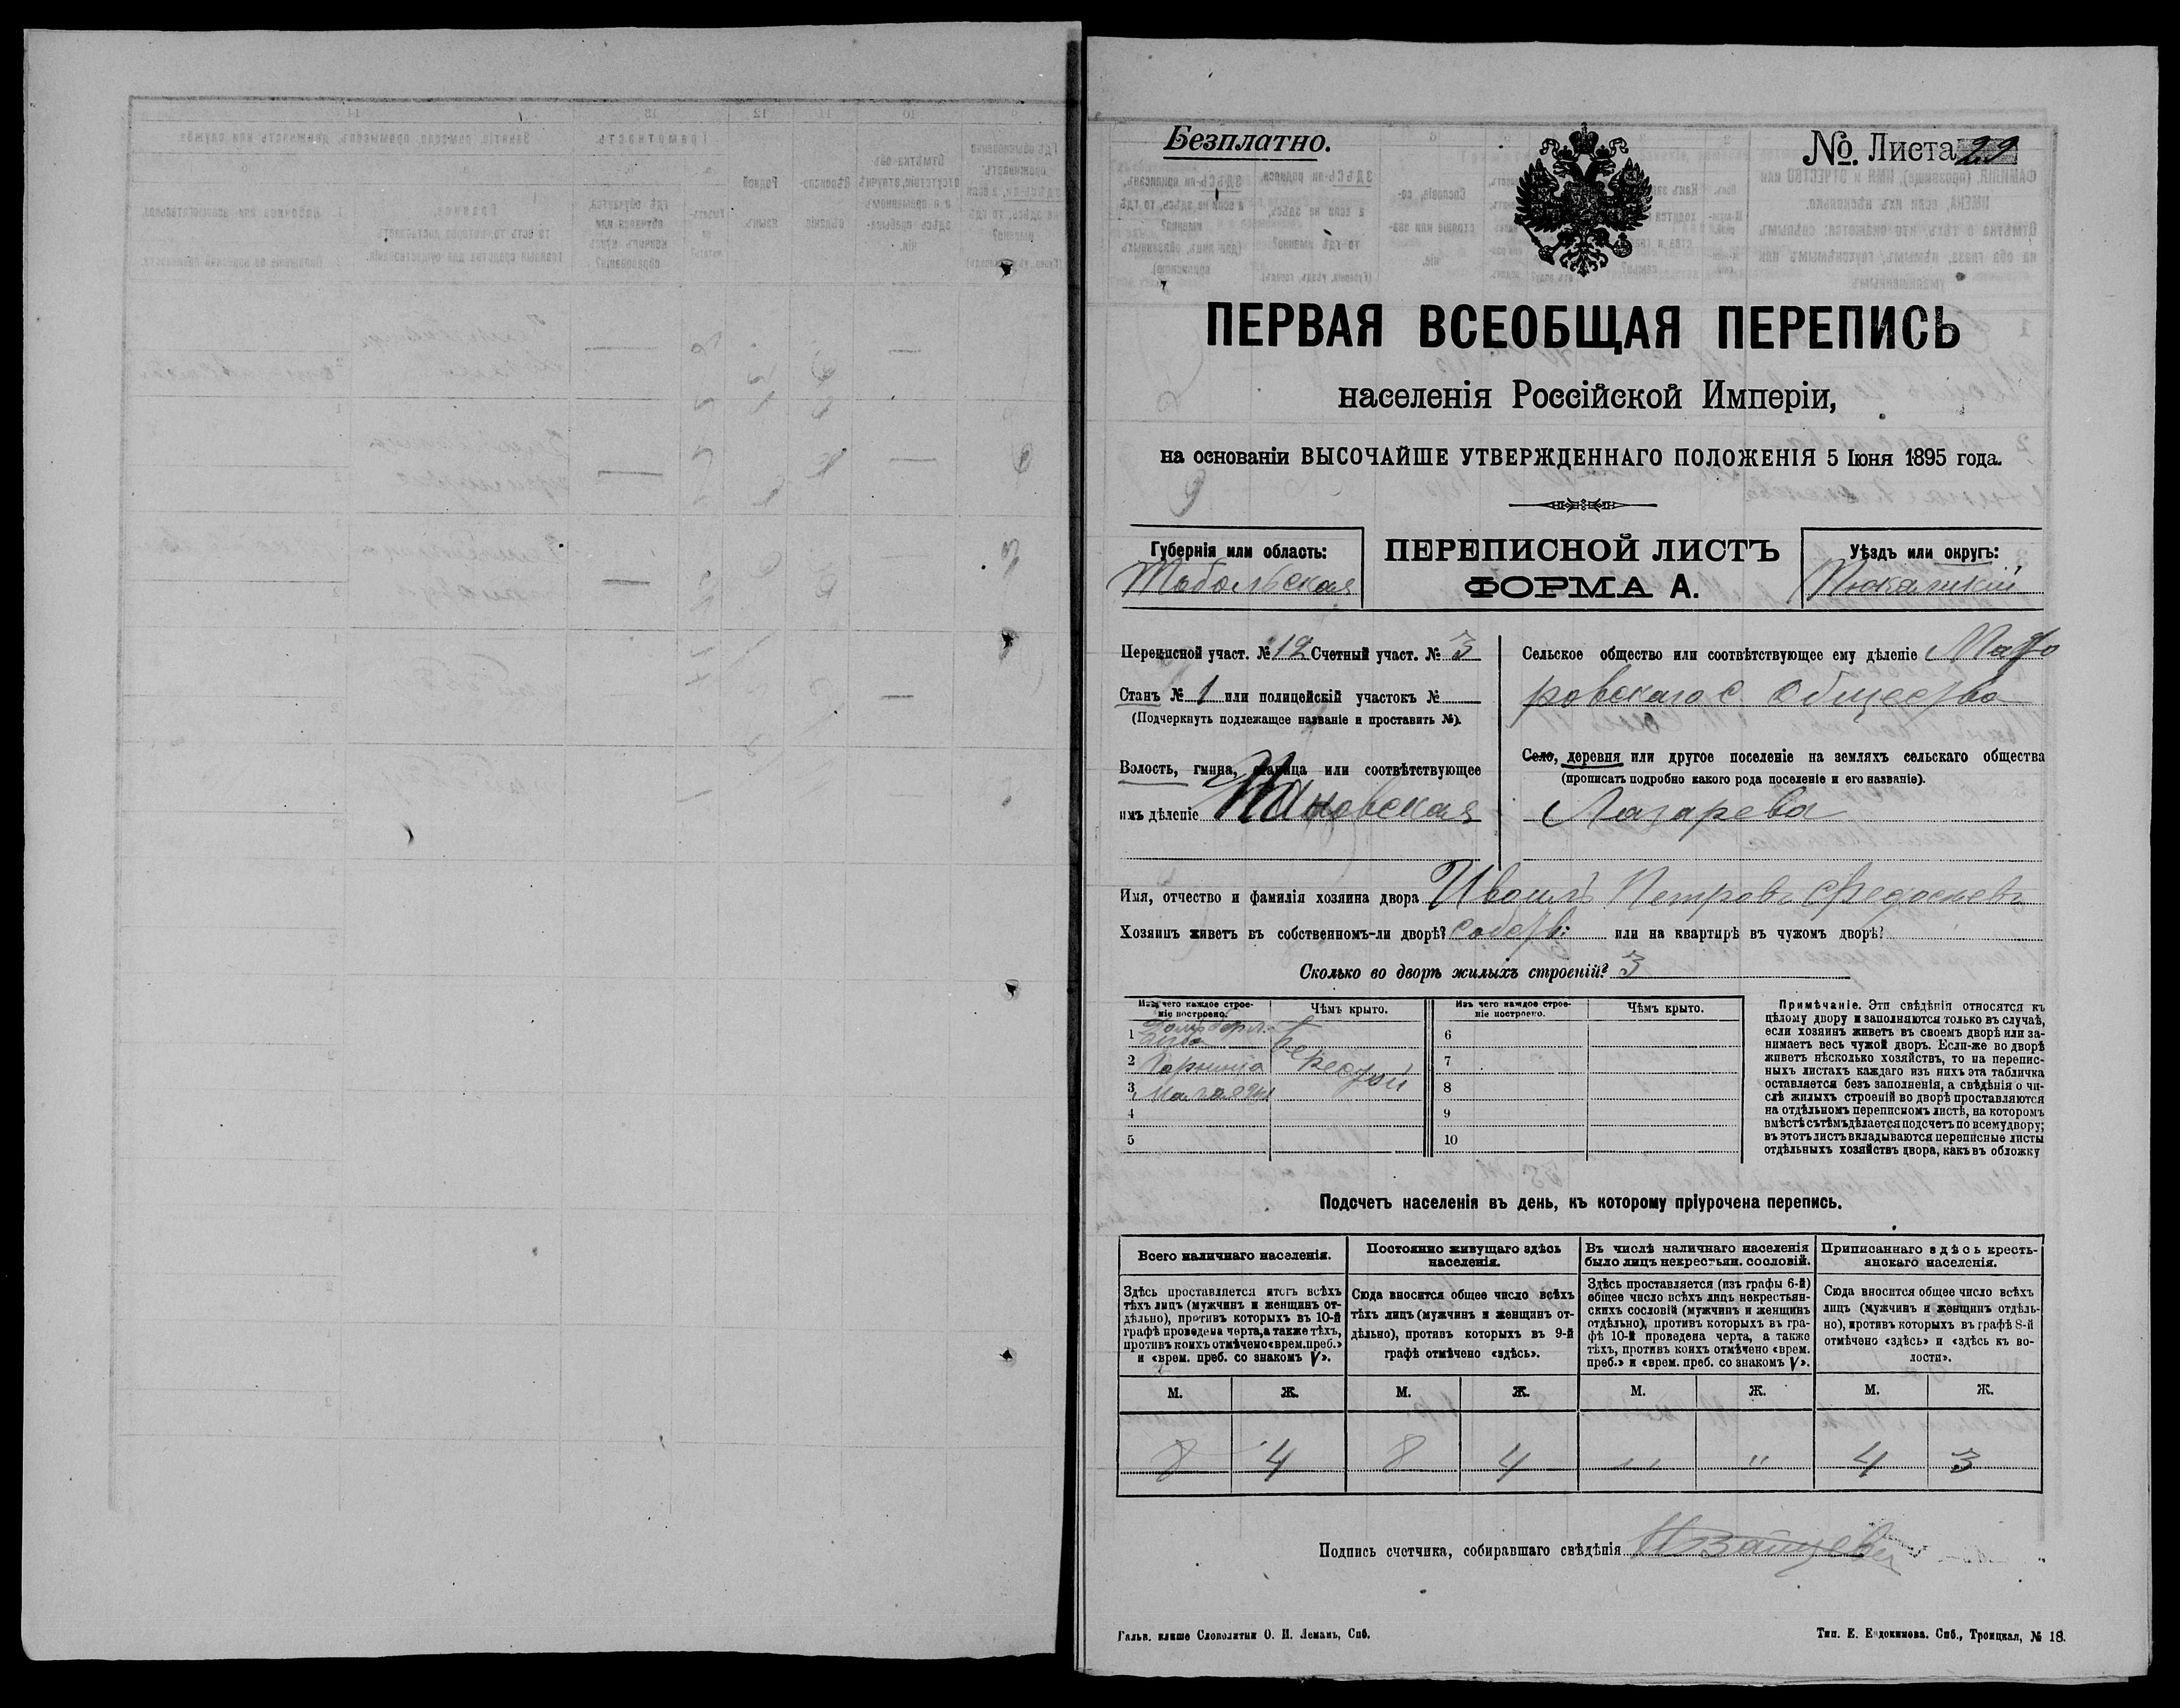 Безплатно.
№ Листа 29
ПЕРВАЯ ВСЕОБЩАЯ ПЕРЕПИСЬ
населенія Россійской Имперіи,
на основаніи ВЫСОЧАЙШЕ УТВЕРЖДЕННАГО ПОЛОЖЕНІЯ 5 Іюня 1895 года.
Губернія или область:
Тобольская
ПЕРЕПИСНОЙ ЛИСТЪ
ФОРМА А.
Уѣздъ или округъ:
Тюкалинскій
Переписной участ. № 12 Счетный участ. № 3
Станъ № 1 или полицейскій участокъ №
(Подчеркнуть подлежащее названіе и проставить №).
Волость, гмина, станица или соотвѣтствующее
имъ дѣленіе
Сельское общество или соотвѣтствующее ему дѣленіе
ровскаго с. Общества
Село, деревня или другое поселеніе на земляхъ сельскаго общества
(прописать подробно какого рода поселеніе и его названіе).
Лазарева
Имя, отчество и фамилія хозяина двора Иванъ Петровъ
Хозяинъ живетъ въ собственномъ-ли дворѣ? Собств: или на квартирѣ въ чужомъ дворѣ?
Сколько во дворѣ жилыхъ строеній? 3
Изъ чего каждое строе-
ніе построено.
Чѣмъ крыто.
Изъ чего каждое строе-
ніе построено.
Чѣмъ крыто.
1
2 Горница
3
4
5
Берестой
6
7
8
9
10
Примѣчаніе. Эти свѣдѣнія относятся къ
цѣлому двору и заполняются только въ случаѣ,
если хозяинъ живетъ въ своемъ дворѣ или за-
нимаетъ весь чужой дворъ. Если-же во дворѣ
живетъ нѣсколько хозяйствъ, то на перепис-
ныхъ листахъ каждаго изъ нихъ эта табличка
оставляется безъ заполненія, а свѣдѣнія о чи-
слѣ жилыхъ строеній во дворѣ проставляются
на отдѣльномъ переписномъ листѣ, на которомъ
вмѣстѣ съ тѣмъ дѣлается подсчетъ по всему двору;
въ этотъ листъ вкладываются переписные листы
отдѣльныхъ хозяйствъ двора, какъ въ обложку
Подсчетъ населенія въ день, къ которому пріурочена перепись.
Всего наличнаго населенія.
Здѣсь проставляется итогъ всѣхъ
тѣхъ лицъ (мужчинъ и женщинъ от-
дѣльно), противъ которыхъ въ 10-й
графѣ проведена черта, а также тѣхъ,
противъ коихъ отмѣчено «врем. преб.»
и «врем. преб. со знакомъ V».
Постоянно живущаго здѣсь
населенія.
Сюда вносится общее число всѣхъ
тѣхъ лицъ (мужчинъ и женщинъ от-
дѣльно), противъ которыхъ въ 9-й
графѣ отмѣчено «здѣсь».
Въ числѣ наличнаго населенія
было лицъ некрестьян. сословій.
Здѣсь проставляется (изъ графы 6-й)
общее число всѣхъ лицъ некрестьян-
скихъ сословій (мужчинъ и женщинъ
отдѣльно), противъ которыхъ въ гра-
фѣ 10-й проведена черта, а также
тѣхъ, противъ коихъ отмѣчено «врем.
преб.» и «врем. преб. со знакомъ V».
Приписаннаго здѣсь кресть-
янскаго населенія.
Сюда вносится общее число всѣхъ
лицъ (мужчинъ и женщинъ отдѣль-
но), противъ которыхъ въ графѣ 8-й
отмѣчено «здѣсь» и «здѣсь къ во-
лости».
М. Ж. М. Ж. М. Ж. М. Ж.
8 4 8 4 " " 4 3
Подпись счетчика, собиравшаго свѣдѣнія
Гальв. клише Словолитни О. И. Леманъ, Спб.
Тип. Е. Евдокимова. Спб., Троицкая, № 18.